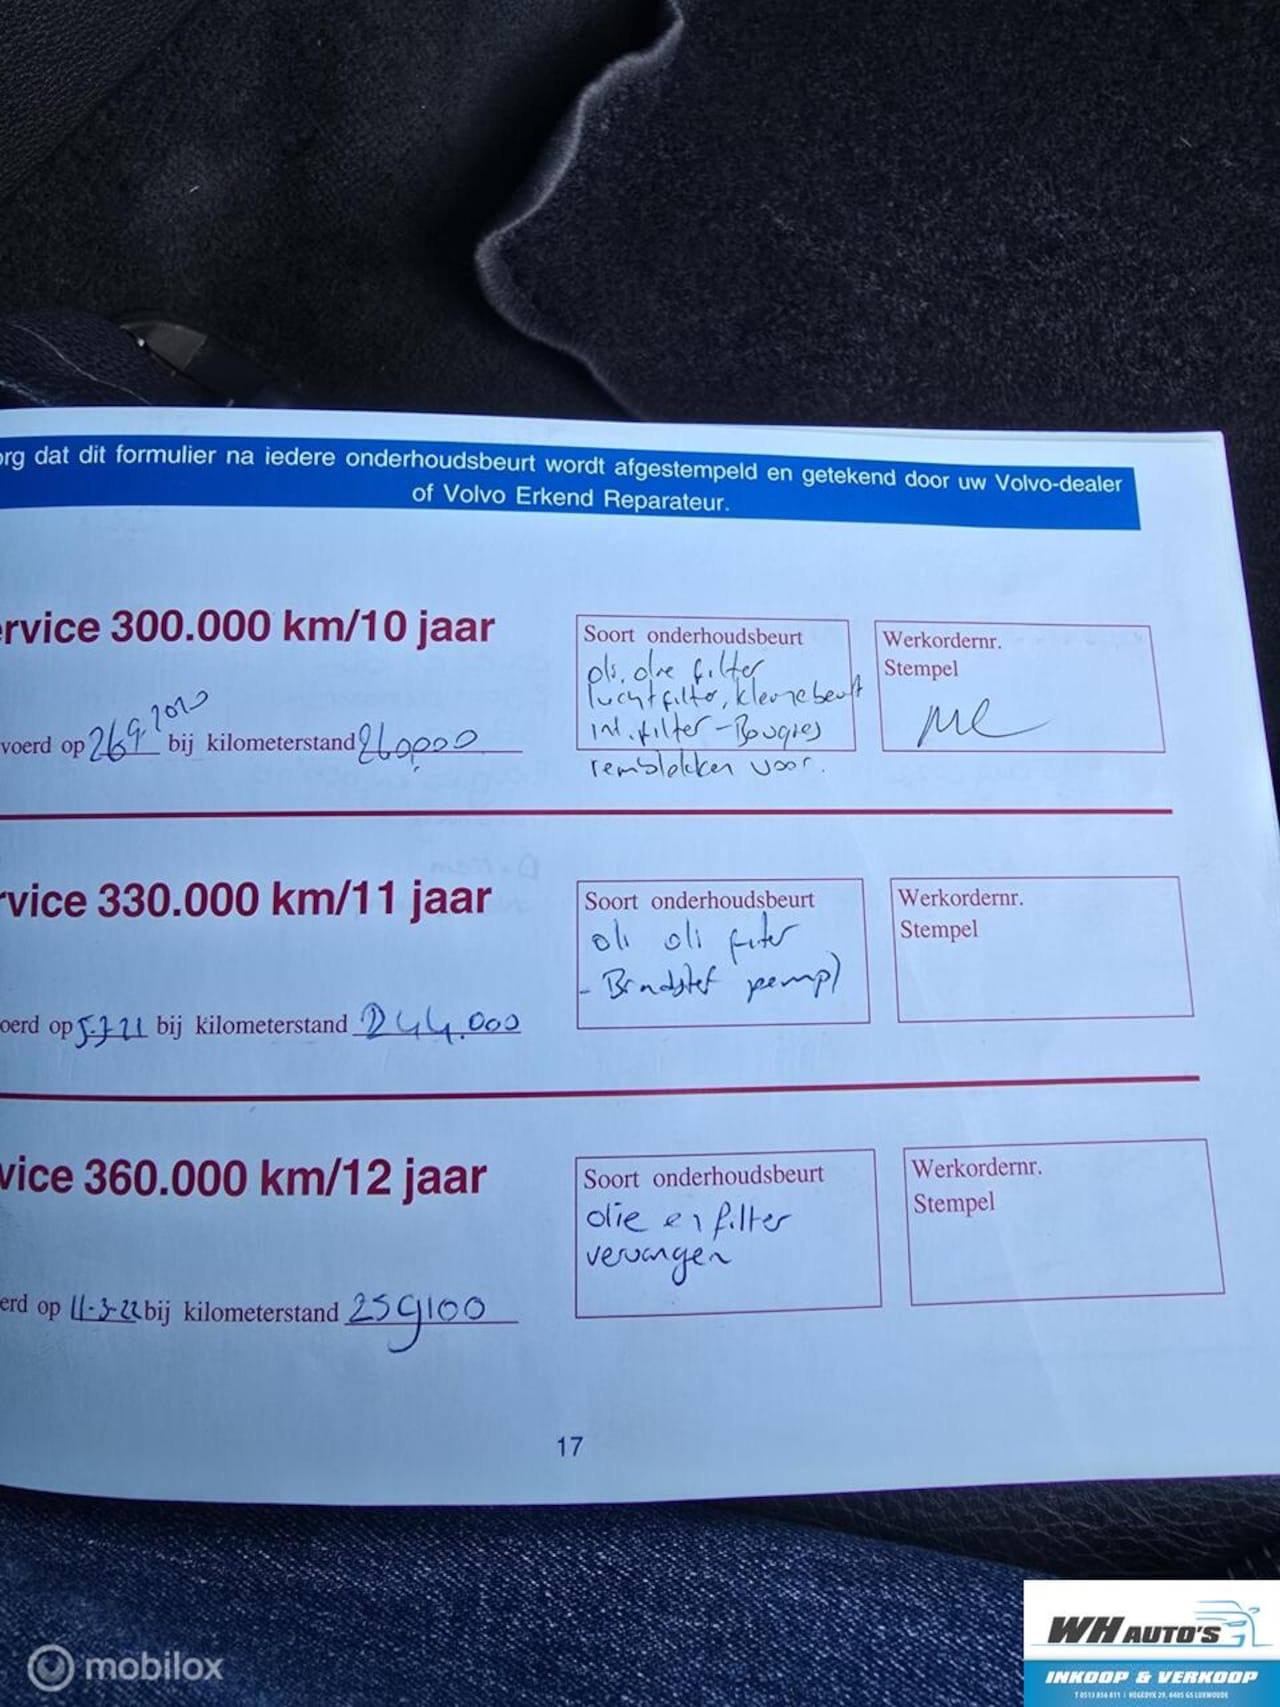 org dat dit formulier na iedere onderhoudsbeurt wordt afgestempeld en getekend door uw Volvo-dealer
of Volvo Erkend Reparateur.
ervice 300.000 km/10 jaar
voerd op 26 9. 2020 bij kilometerstand 260,000
Soort onderhoudsbeurt
oli, olie filter
luchtfilter, kleine beurt
int. filter - Bougies
remblokken voor.
Werkordernr.
Stempel
rvice 330.000 km/11 jaar
oerd op 5-7 21 bij kilometerstand 244.000
Soort onderhoudsbeurt
oli oli filter
Werkordernr.
Stempel
vice 360.000 km/12 jaar
erd op 11-3-22 bij kilometerstand 259100
Soort onderhoudsbeurt
olie en filter
vervangen
Werkordernr.
Stempel
17
mobilox
WH AUTO'S
INKOOP & VERKOOP
T 0513 856 811 | HEGEDYK 29, 8405 GS LUXWOUDE